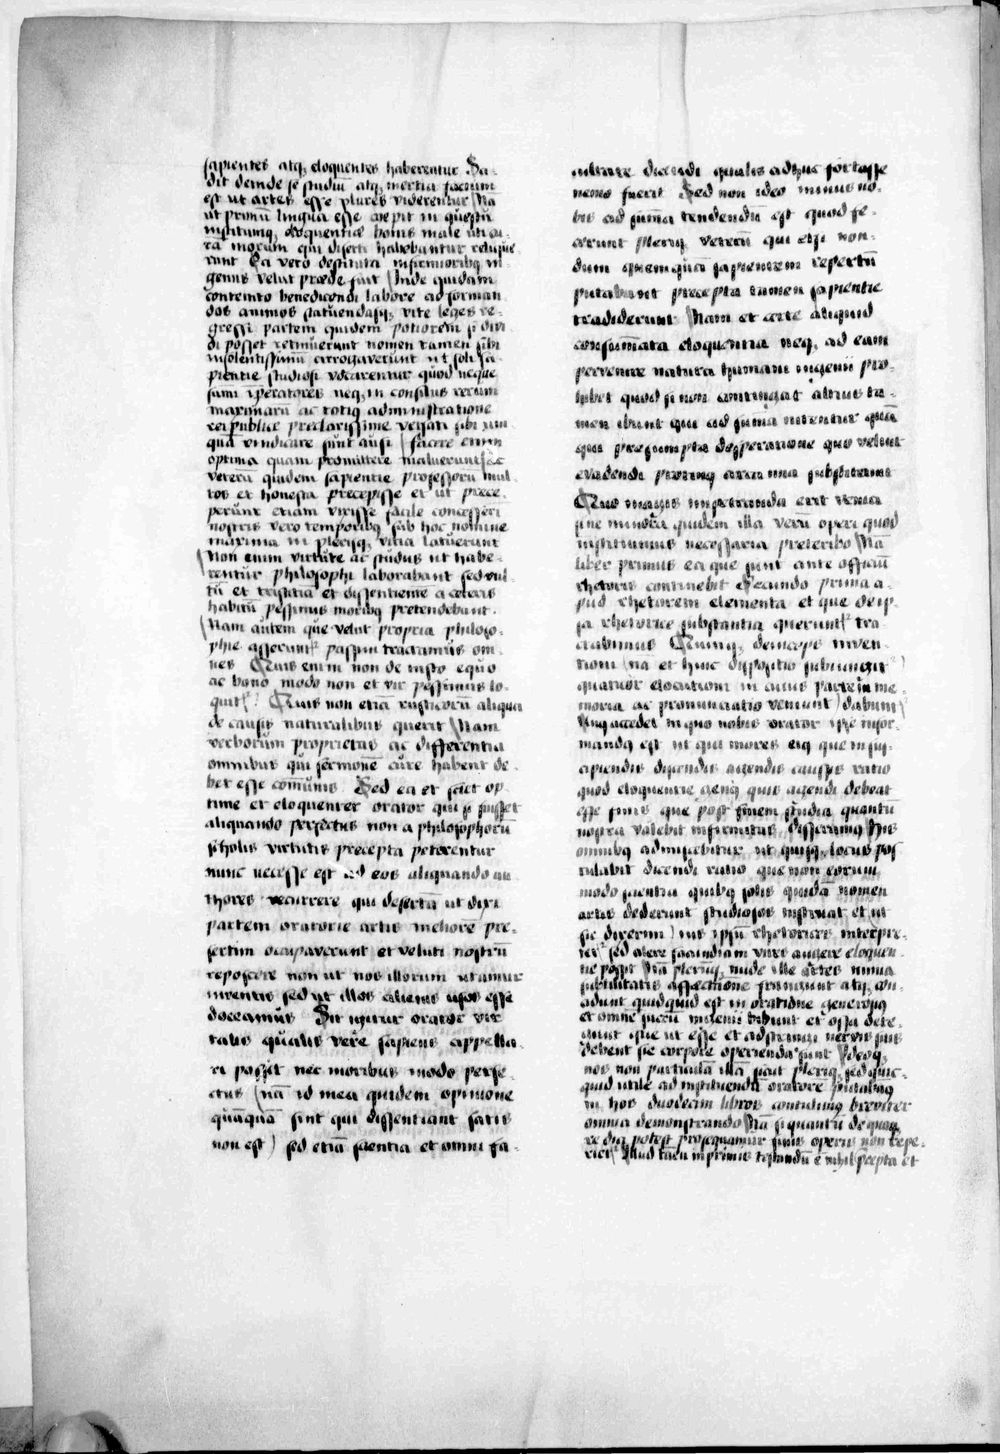 sapientes atq; eloquentes haberentur Sci-
dit deinde se studiū atq; inertia factum
est ut artes esse plures viderentur Nā
ut primū lingua esse coepit in questu
institutumq; eloquentiæ bonis male uti cu-
ra morum qui diserti habebantur relique-
runt Ea vero destituta infirmioribꝯ in-
geniis velut præde fuit Inde quidam
contempto benedicendi labore ad forman-
dos animos statuendasq; vite leges re-
gressi partem quidem potiorem si divi
di posset retinuerunt nomen tamen sibi
insolentissimū arrogaverunt ut soli sa-
pientie studiosi vocarentur quod neque
sūmi īperatores neq; in consiliis rerum
maximarū ac totiꝯ administratione
rei publice preclarissime versati sibi um
quā vindicare sunt ausi facere enim
optima quam promittere maluerunt Ac
veterū quidem sapientie professorū mul
tos et honesta precepisse et ut prece-
perunt etiam vixisse facile concesseri
nostris vero temporibꝯ sub hoc nomine
maxima in plerisq; vitia latuerunt
Non enim virtute ac studiis ut habe-
rentur philosophi laborabant sed vul-
tū et tristitiā et dissentiente a ceteris
habitū pessimis moribꝯ pretendebant.
Nam autem que velut propria philoso-
phie asseruntᷣ passim tractamus om-
nes Quis enim non de iusto equo
ac bono modo non et vir pessimus lo-
quitᷣ? Quis non etiā rusticorū aliqua
de causis naturalibus querit Nam
verborum proprietas ac differentia
omnibus qui sermonē cure habent de-
bet esse cōmunis Sed ea et sciet op-
time et eloquetur orator qui si fuisset
aliquando perfectus non a philosophorū
scholis virtutis precepta peterentur
nunc necesse est ad eos aliquando au-
thores recurrere qui desertā ut dixi
partem oratorie artis meliorē pre-
sertim occupaverunt et veluti nostrū
reposcere non ut nos illorum utamur
inventis sed ut illos alienis usos esse
doceamus Sit igitur orator vir
talis qualis vere sapiens appella-
ri possit nec moribus modo perfe-
ctus (nā id mea quidem opinione
quāquā sint qui dissentiant satis
non est) sed etiā scientia et omni fa-
cultate dicendi qualis adhuc fortasse
nemo fuerit Sed non ideo minus no-
bis ad sūma tendendū est quod fe-
cerunt pleriq; veterū qui etsi non-
dum quemquā sapientem repertū
putabant precepta tamen sapientie
tradiderunt Nam et certe aliquid
consumata eloquentia neq; ad eam
pervenire natura humani ingenii pro-
hibet quod si non contingat altius ta-
men ibunt qui ad sūma nitentur quā
qui presumpta desperatione quo velint
evadendi protinꝯ circa ima substiterint
Quo magis impetranda erit venia
sine minora quidem illa verū operi quod
instituimus necessaria preteribo Nā
liber primus ea que sunt ante officiū
rhetoris continebit Secundo prima a-
pud rhetorem elementa et que de ip-
sa rhetorice substantia queruntᷣ tra-
ctabimus Quinqꝫ deinceps inven-
tioni (nā et huic dispositio subiungitᷣ)
quatuor elocutioni in cuius partē me-
moria ac pronunciatio veniunt) dabuntᷣ
Unꝯ accedet in quo nobis orator ipse infor-
mandꝯ est ut qui mores eiꝯ que in sus-
cipiendis discendis agendis causis ratio
quod eloquentie genꝯ quis agendi debeat
esse finis que post finem studia quantū
nostra valebit infirmitas disseramꝯ His
omnibꝯ admiscebitur ut quisq; locus pos
tulabit dicendi ratio que non eorum
modo scientia quibꝯ solis quidā nomen
artis dederunt studiosos instruat et ut
sic dixerim) ius ipsū rhetorices interpre-
tetᷣ sed alere facundiam vires augere eloquen-
tie possit Nā plerūq; nude ille artes nimia
subtilitatis affectatione frangunt atq; con-
cidunt quidquid est in oratione generosiꝯ
et omnē succū ingenii bibunt et ossa dete-
gunt que ut esse et adstringi nervis suis
debent sic corpore operienda sunt Ideoq;
nos non particulā illā sicut pleriq; sed quic-
quid utile ad instituendū oratorē putabamꝯ
in hos duodecim libros contulimꝯ breviter
omnia demonstrando Nā si quantū de quaq;
re dici potest prosequamur finis operis non repe-
rietᷣ Illud tamē inprimis testandū ē nihil p̄cepta et